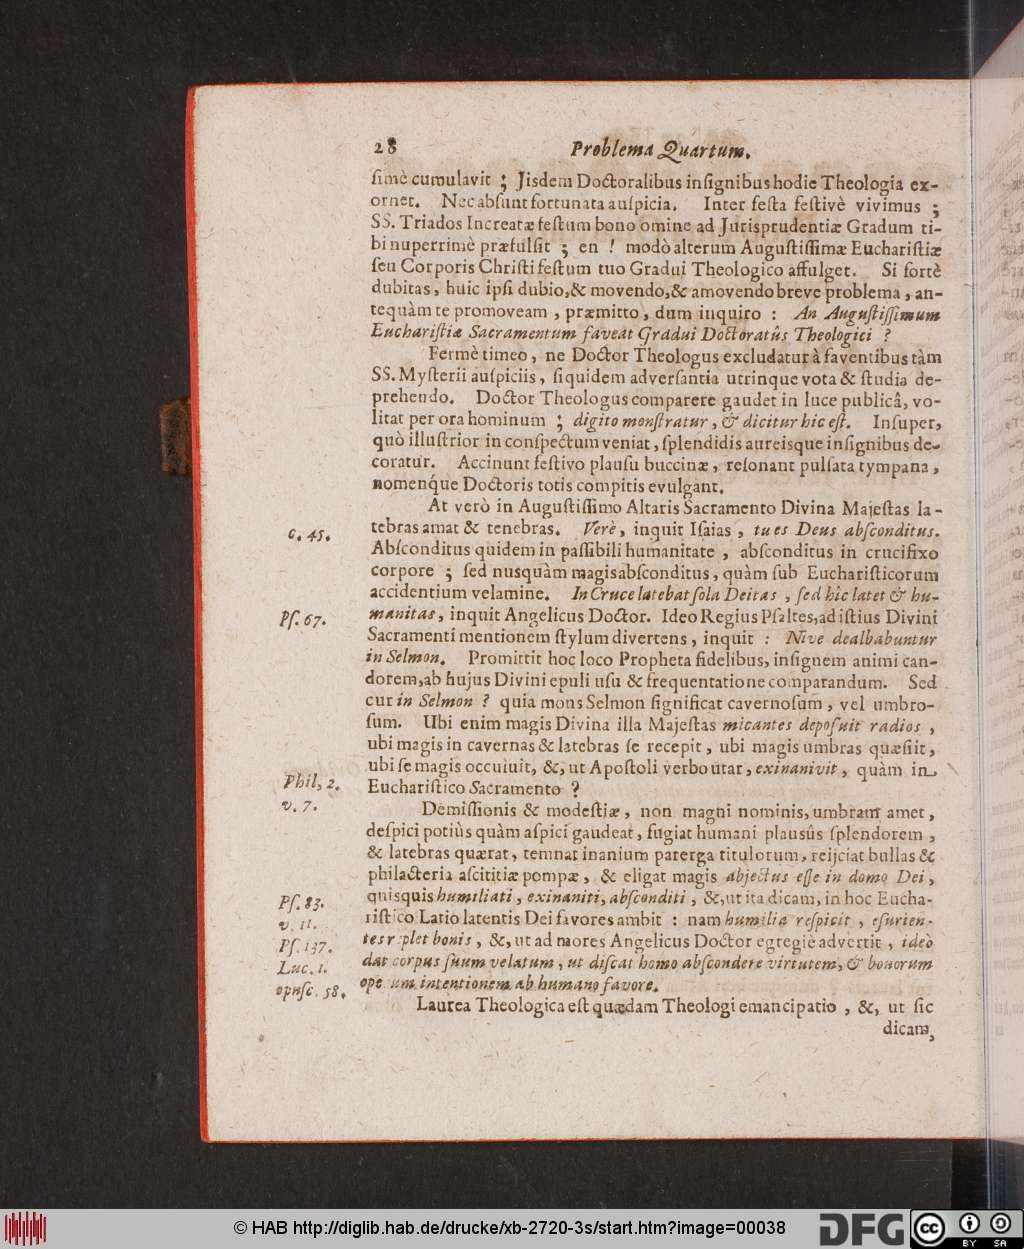 28 Problema Quartum.
ſimè cumulavit ; Jisdem Doctoralibus inſignibus hodie Theologia ex-
ornet. Nec abſunt fortunata auſpicia. Inter feſta feſtivè vivimus ;
SS. Triados Increatæ feſtum bono omine ad Jurisprudentiæ Gradum ti-
bi nuperrimè præfulſit ; en ! modò alterum Auguſtiſſimæ Euchariſtiæ
ſeu Corporis Chriſti feſtum tuo Gradui Theologico affulget. Si fortè
dubitas, huic ipſi dubio, & movendo, & amovendo breve problema, an-
tequàm te promoveam, præmitto, dum inquiro : An Auguſtiſſimum
Euchariſtiæ Sacramentum faveat Gradui Doctoratûs Theologici ?
Fermè timeo, ne Doctor Theologus excludatur à faventibus tàm
SS. Myſterii auſpiciis, ſiquidem adverſantia utrinque vota & ſtudia de-
prehendo. Doctor Theologus comparere gaudet in luce publicâ, vo-
litat per ora hominum ; digito monſtratur, & dicitur hic eſt. Inſuper,
quò illuſtrior in conſpectum veniat, ſplendidis aureisque inſignibus de-
coratur. Accinunt feſtivo plauſu buccinæ, reſonant pulſata tympana,
nomenque Doctoris totis compitis evulgant.
At verò in Auguſtiſſimo Altaris Sacramento Divina Majeſtas la-
tebras amat & tenebras. Verè, inquit Iſaias, tu es Deus abſconditus.
c. 45.
Abſconditus quidem in paſſibili humanitate, abſconditus in crucifixo
corpore ; ſed nusquàm magis abſconditus, quàm ſub Euchariſticorum
accidentium velamine. In Cruce latebat ſola Deitas, ſed hic latet & hu-
manitas, inquit Angelicus Doctor. Ideo Regius Pſaltes, ad iſtius Divini
Pſ. 67.
Sacramenti mentionem ſtylum divertens, inquit : Nive dealbabuntur
in Selmon. Promittit hoc loco Propheta fidelibus, inſignem animi can-
dorem, ab hujus Divini epuli uſu & frequentatione comparandum. Sed
cur in Selmon ? quia mons Selmon ſignificat cavernoſum, vel umbro-
ſum. Ubi enim magis Divina illa Majeſtas micantes depoſuit radios,
ubi magis in cavernas & latebras ſe recepit, ubi magis umbras quæſiit,
ubi ſe magis occuluit, &, ut Apoſtoli verbo utar, exinanivit, quàm in
Euchariſtico Sacramento ?
Phil. 2.
v. 7.
Demiſſionis & modeſtiæ, non magni nominis, umbram amet,
deſpici potiùs quàm aſpici gaudeat, fugiat humani plausûs ſplendorem,
& latebras quærat, temnat inanium parerga titulorum, reijciat bullas &
philacteria aſcititiæ pompæ, & eligat magis abjectus eſſe in domo Dei,
quisquis humiliati, exinaniti, abſconditi, &, ut ita dicam, in hoc Eucha-
Pſ. 83.
v. 11.
riſtico Latio latentis Dei favores ambit : nam humilia reſpicit, eſurien-
Pſ. 137.
tes replet bonis, &, ut ad mores Angelicus Doctor egregiè advertit, ideò
Luc. 1.
dat corpus ſuum velatum, ut diſcat homo abſcondere virtutem, & bonorum
opuſc. 58.
operum intentionem ab humano favore.
Laurea Theologica eſt quædam Theologi emancipatio, &, ut ſic
dicam,
© HAB http://diglib.hab.de/drucke/xb-2720-3s/start.htm?image=00038
DFG
cc BY SA